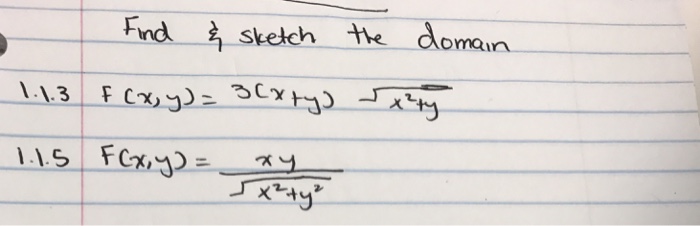 Find & sketch the domain
1.1.3 F(x,y) = 3(x+y) √x²+y
1.1.5 F(x,y) = xy / √x²+y²